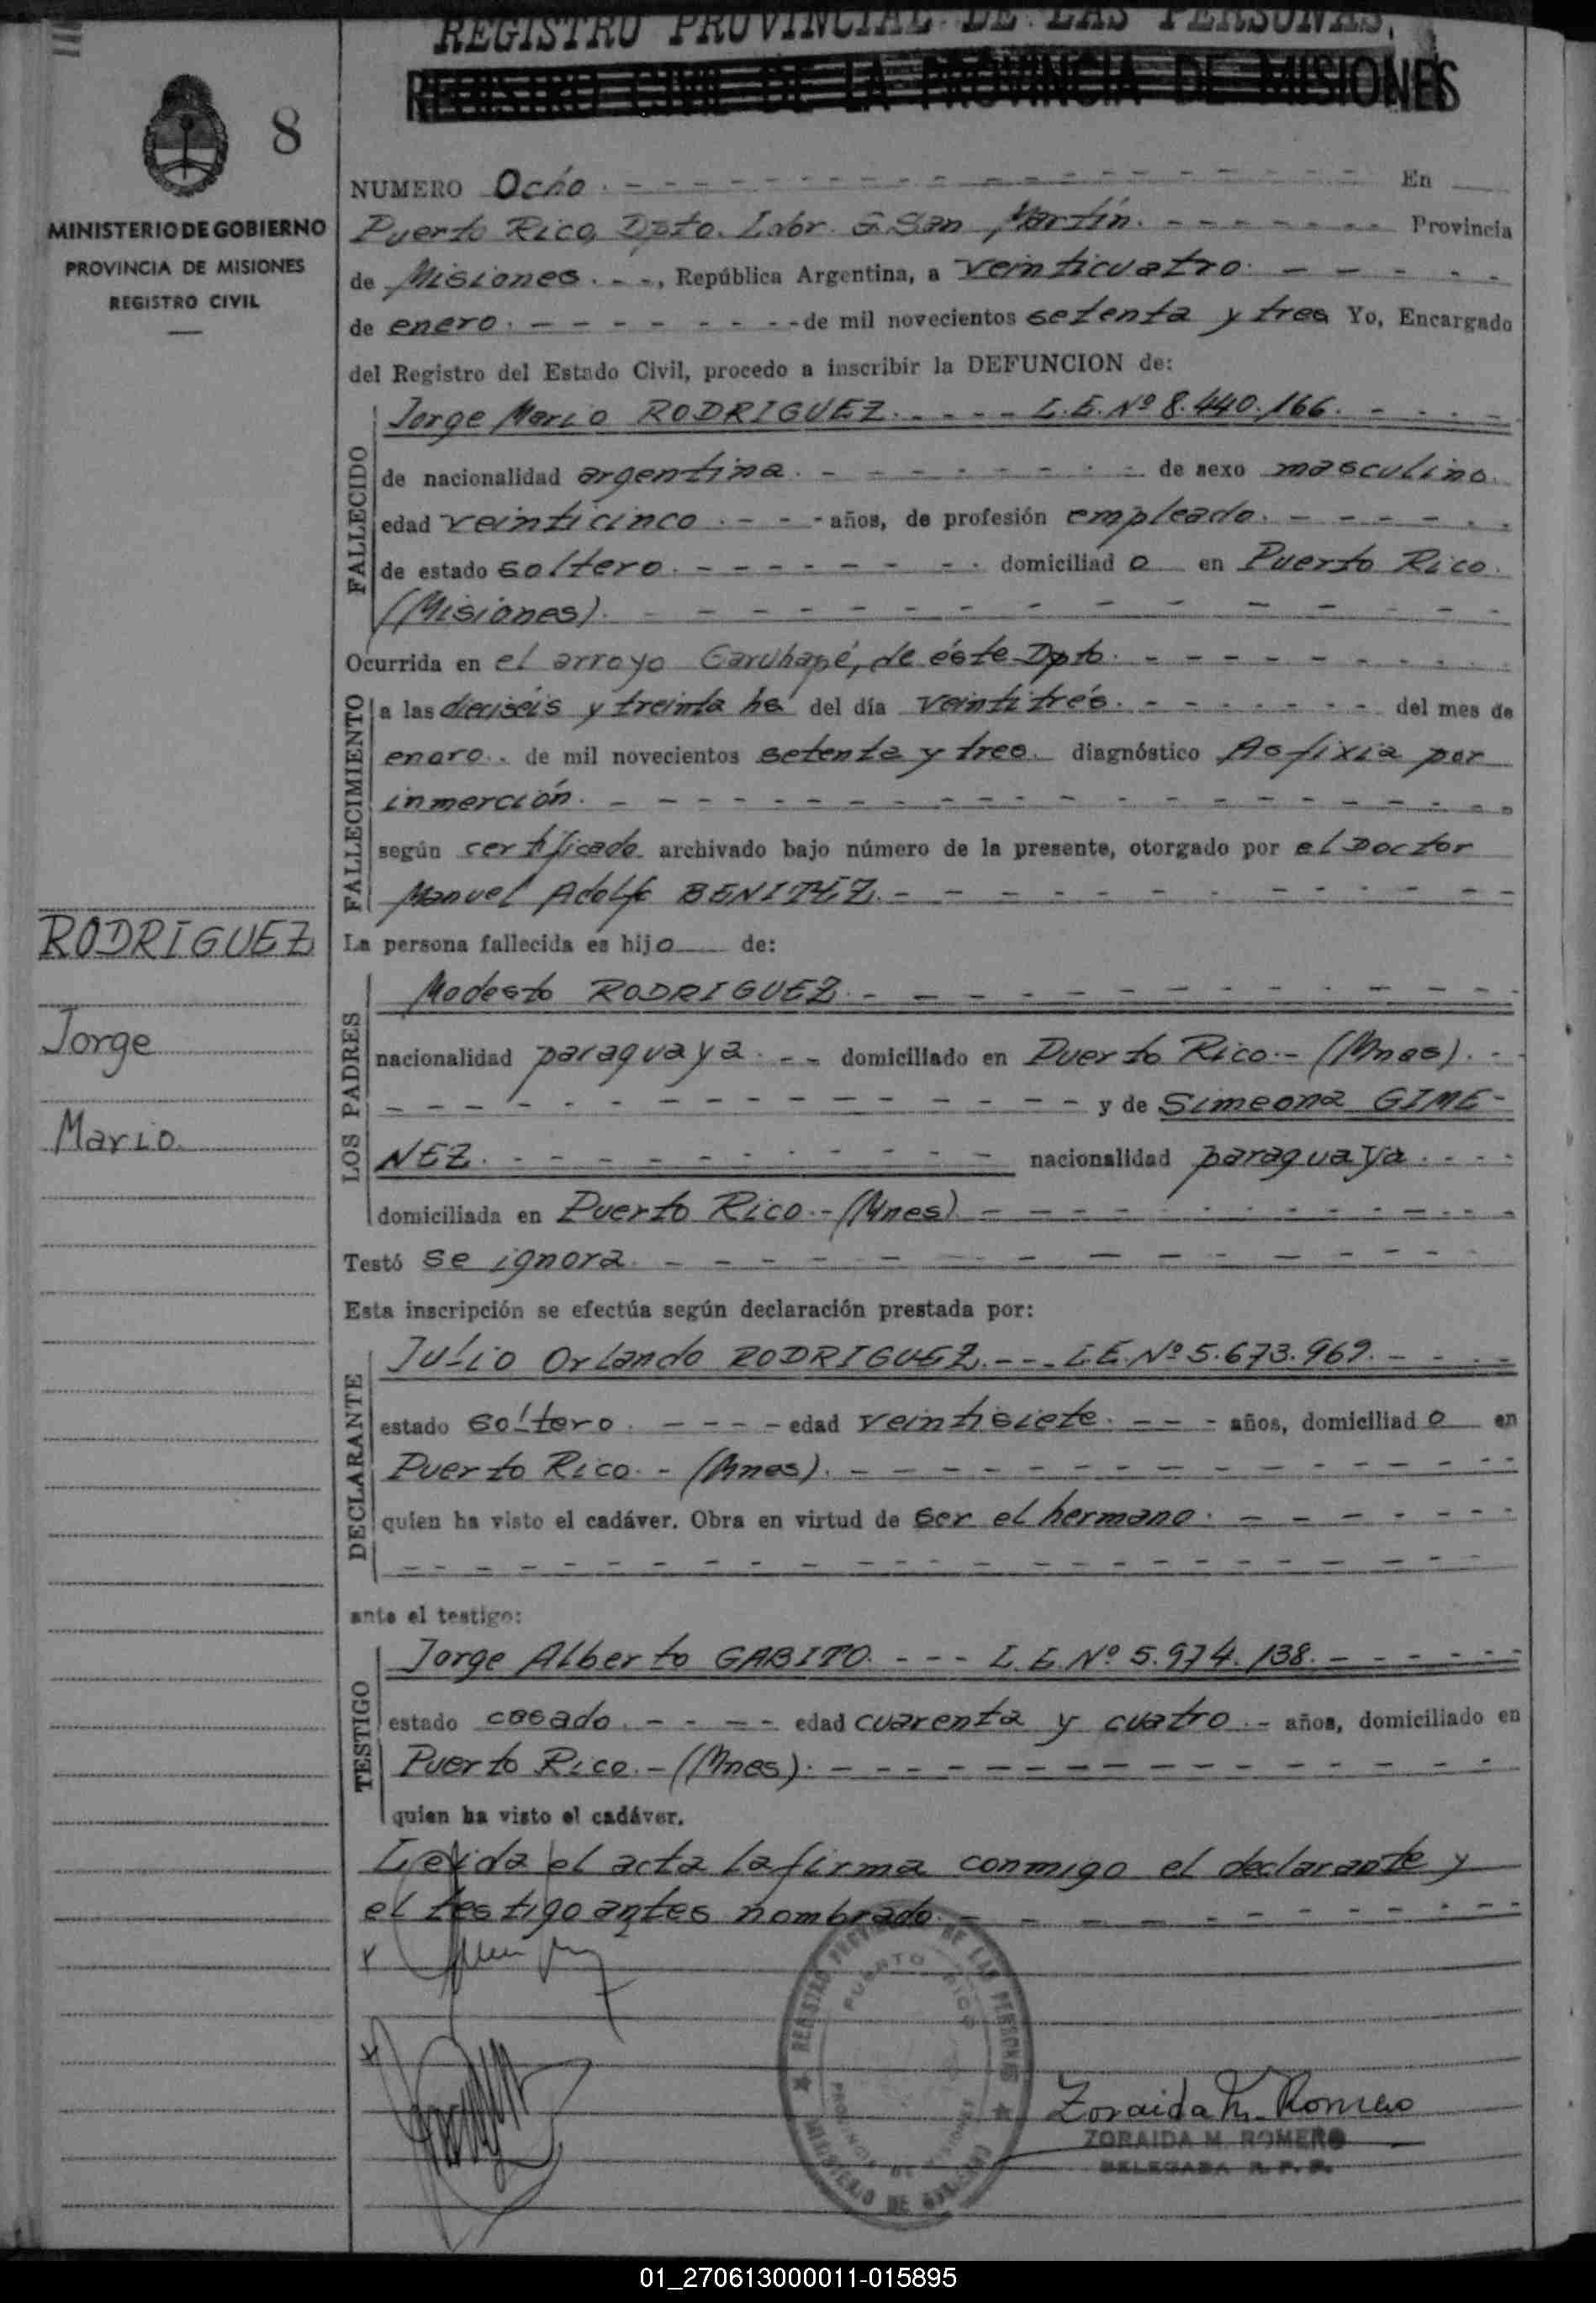 REGISTRO PROVINCIAL DE LAS PERSONAS.
REGISTRO CIVIL DE LA PROVINCIA DE MISIONES
8
MINISTERIO DE GOBIERNO
PROVINCIA DE MISIONES
REGISTRO CIVIL
NUMERO Ocho. En
Puerto Rico, Dpto. Lobr. G. San Martín. Provincia
de Misiones. - -, República Argentina, a veinticuatro.
de enero. de mil novecientos setenta y tres Yo, Encargado
del Registro del Estado Civil, procedo a inscribir la DEFUNCION de:
FALLECIDO
Jorge Mario RODRIGUEZ. - - - - L.E. Nº 8.440.166.
de nacionalidad argentina. de sexo masculino.
edad veinticinco. - - - años, de profesión empleado.
de estado soltero. domiciliad o en Puerto Rico.
(Misiones).
Ocurrida en el arroyo Garuhapé, de éste Dpto.
FALLECIMIENTO
a las dieciséis y treinta hs del día veintitrés. del mes de
enero. de mil novecientos setenta y tres. diagnóstico Asfixia por
inmerción.
según certificado archivado bajo número de la presente, otorgado por el Doctor
Manuel Adolfo BENITEZ.
La persona fallecida es hijo de:
LOS PADRES
Modesto RODRIGUEZ.
nacionalidad paraguaya. - - domiciliado en Puerto Rico.- (Mnes).
y de Simeona GIME-
NEZ. nacionalidad paraguaya.
domiciliada en Puerto Rico.- (Mnes)
Testó se ignora.
Esta inscripción se efectúa según declaración prestada por:
DECLARANTE
Julio Orlando RODRIGUEZ. - - - L.E. Nº 5.673.969.
estado soltero. - - - - edad veintisiete. - - - años, domiciliad o en
Puerto Rico. - (Mnes).
quien ha visto el cadáver. Obra en virtud de ser el hermano.
ante el testigo:
TESTIGO
Jorge Alberto GABITO. - - - L.E. Nº 5.974.138.
estado casado. - - - - edad cuarenta y cuatro. - años, domiciliado en
Puerto Rico. - (Mnes).
quien ha visto el cadáver.
Leída el acta la firma conmigo el declarante y
el testigo antes nombrado.
RODRIGUEZ
Jorge
Mario.
REGISTRO PROVINCIAL DE LAS PERSONAS
PUERTO RICO
PROVINCIA DE MISIONES
MINISTERIO DE GOBIERNO
Zoraida M. Romero
ZORAIDA M. ROMERO
DELEGADA R. P. P.
01_270613000011-015895